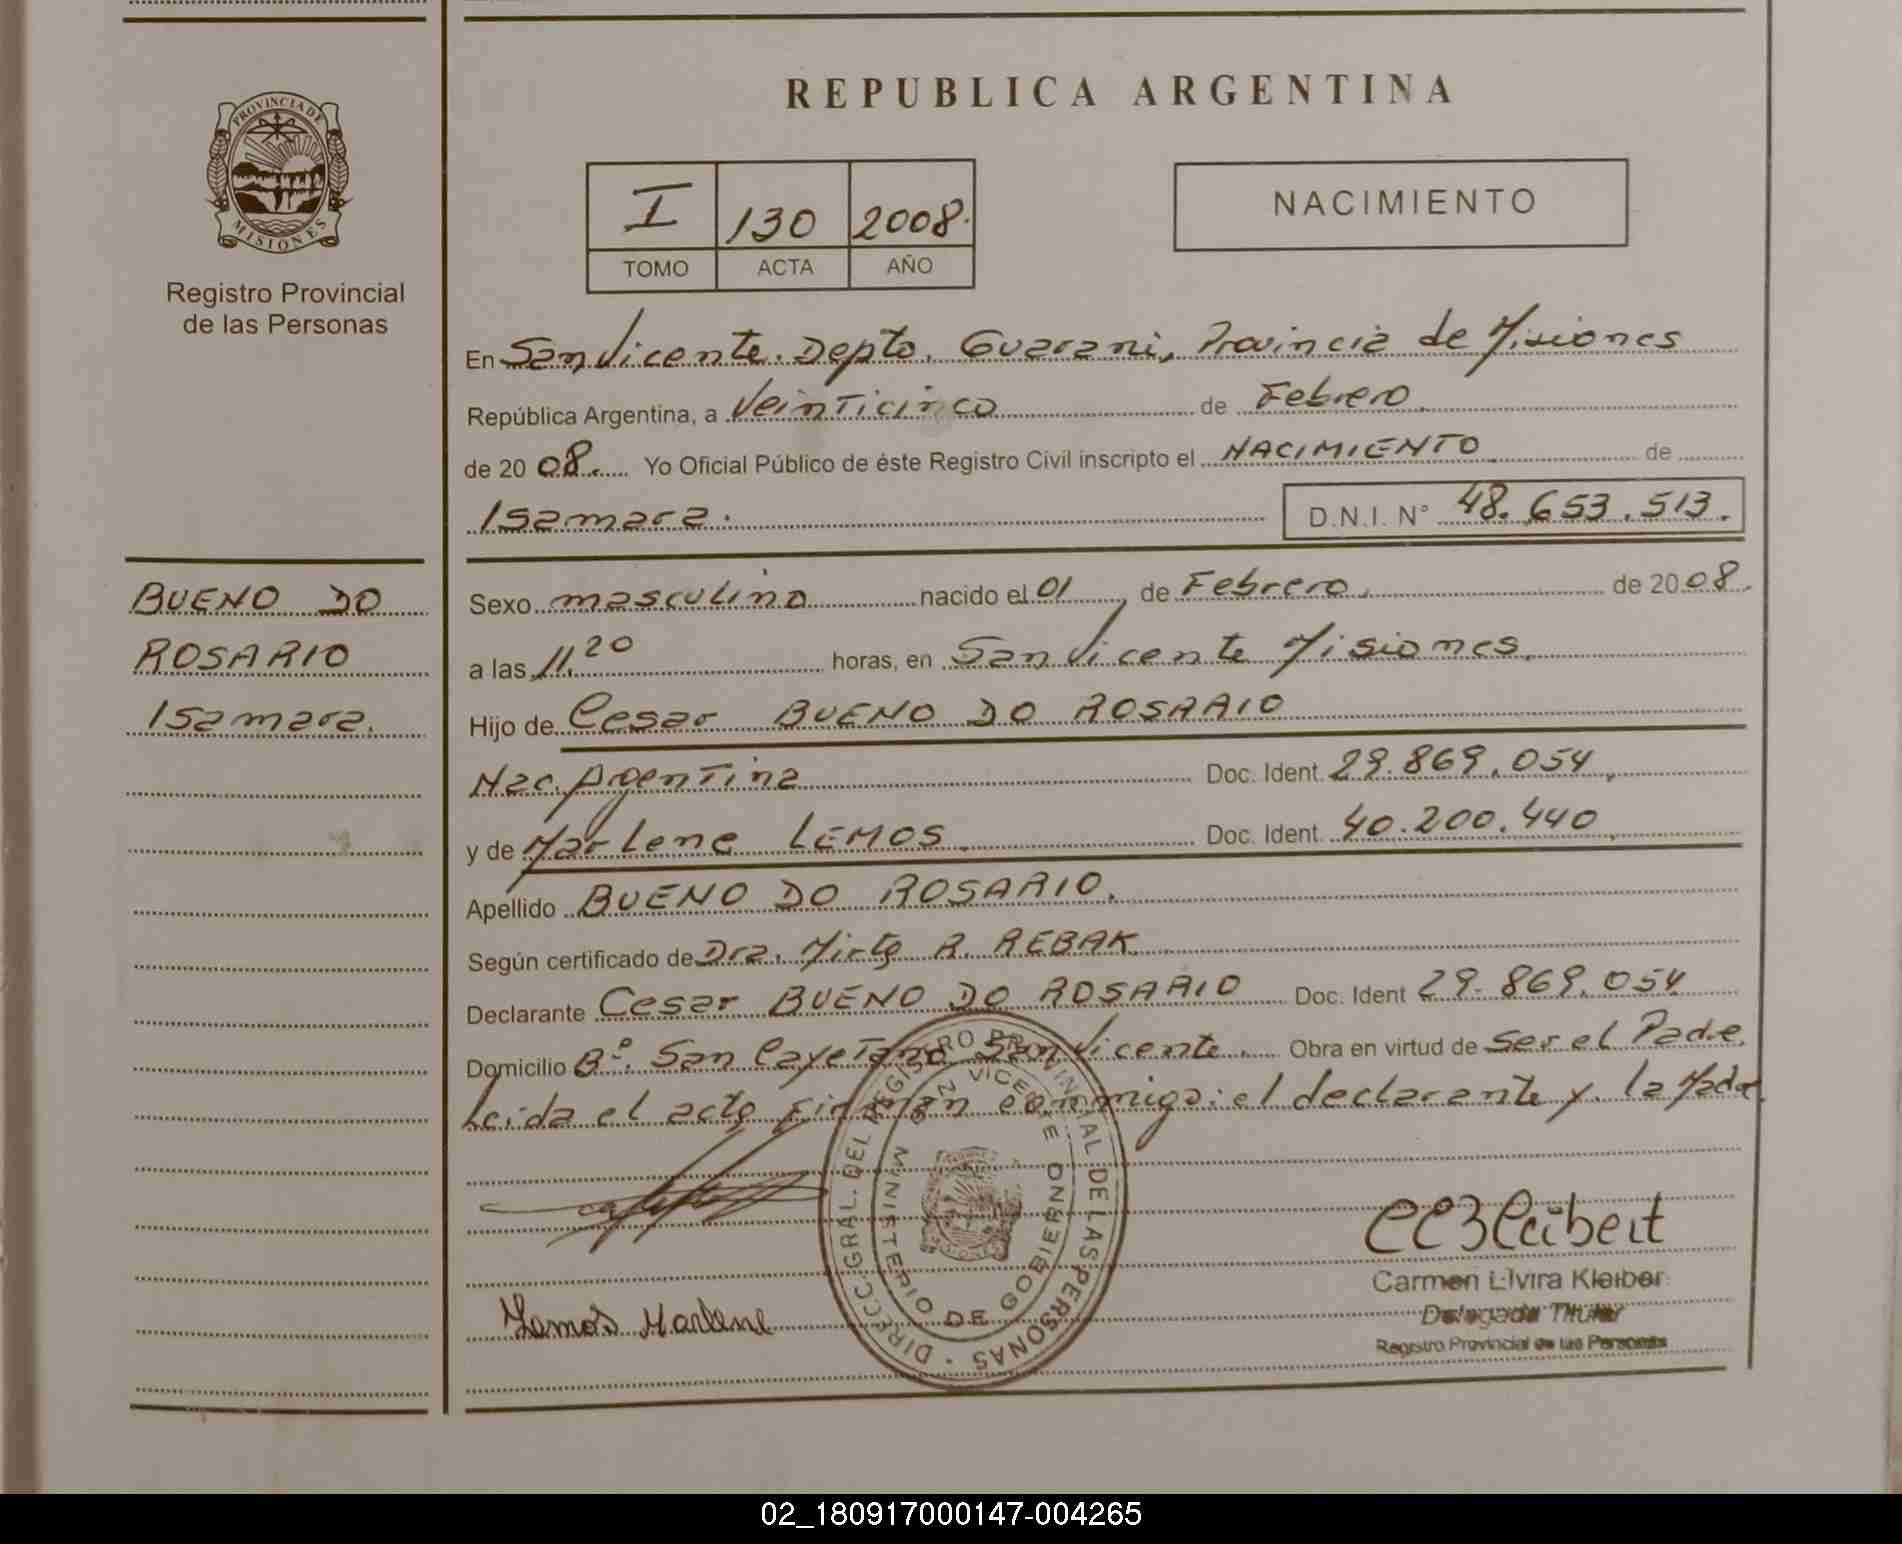 REPUBLICA ARGENTINA
PROVINCIA DE
MISIONES
Registro Provincial
de las Personas
I 130 2008.
TOMO ACTA AÑO
NACIMIENTO
En San Vicente. Depto. Guarani, Provincia de Misiones
República Argentina, a Veinticinco de Febrero
de 20 08. Yo Oficial Público de éste Registro Civil inscripto el NACIMIENTO de
Isamara. D.N.I. N° 48.653.513.
BUENO DO
ROSARIO
Isamara.
Sexo masculino nacido el 01 de Febrero, de 20 08.
a las 11.20 horas, en San Vicente Misiones.
Hijo de Cesar BUENO DO ROSARIO
Nac. Argentina Doc. Ident. 29.869.054
y de Marlene LEMOS. Doc. Ident. 40.200.440
Apellido BUENO DO ROSARIO.
Según certificado de Dra. Mirta R. REBAK
Declarante Cesar BUENO DO ROSARIO Doc. Ident 29.869.054
Domicilio B°. San Cayetano San Vicente. Obra en virtud de ser el Padre.
Leida el acta firman conmigo: el declarante y la Madre.
DIRECC. GRAL. DEL REGISTRO PROVINCIAL DE LAS PERSONAS
SAN VICENTE
MINISTERIO DE GOBIERNO
Lemos Marlene
Carmen Elvira Kleiber
Delegada Titular
Registro Provincial de las Personas
02_180917000147-004265